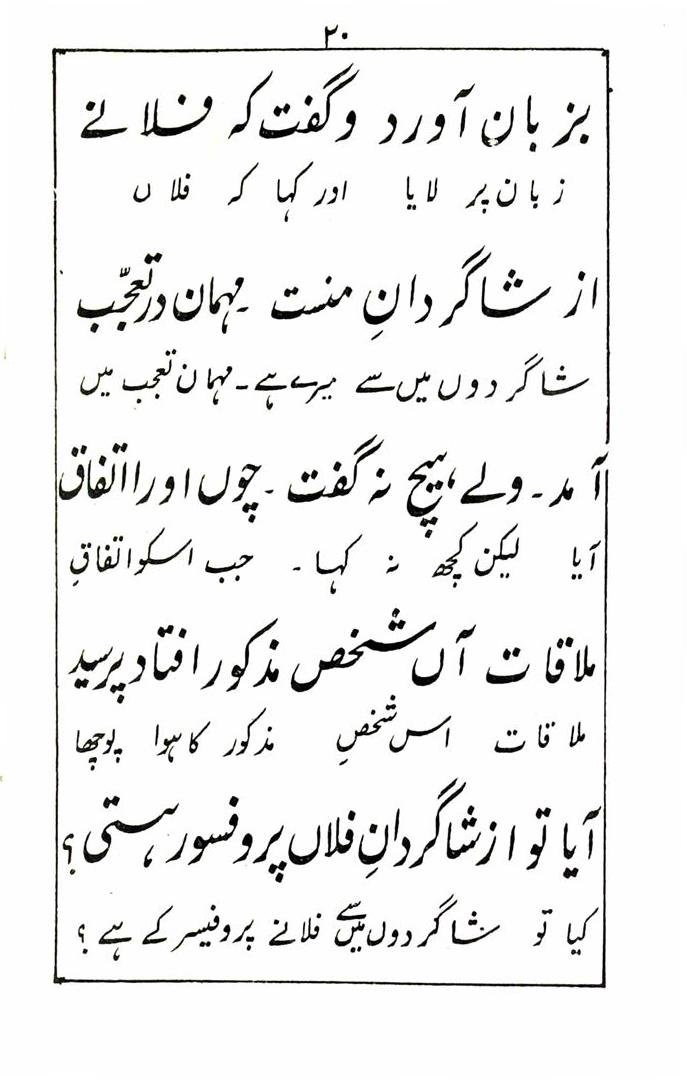 ۲۰
بزبان آورد وگفت کہ فلانے
زبان پر لایا اور کہا کہ فلاں
از شاگردانِ منست ۔ مہمان در تعجّب
شاگردوں میں سے میرے ہے ۔ مہمان تعجب میں
آمد ۔ ولے ہیچ نہ گفت ۔ چوں اورا اتفاق
آیا لیکن کچھ نہ کہا ۔ جب اسکو اتفاقِ
ملاقات آں شخص مذکور افتاد پرسید
ملاقات اس شخصِ مذکور کا ہوا پوچھا
آیا تو از شاگردانِ فلاں پروفسور ہستی ؟
کیا تو شاگردوں میں سے فلانے پروفیسر کے ہے ؟